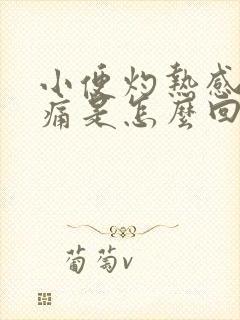 小便灼熱感
痛是怎麼回
葡萄v